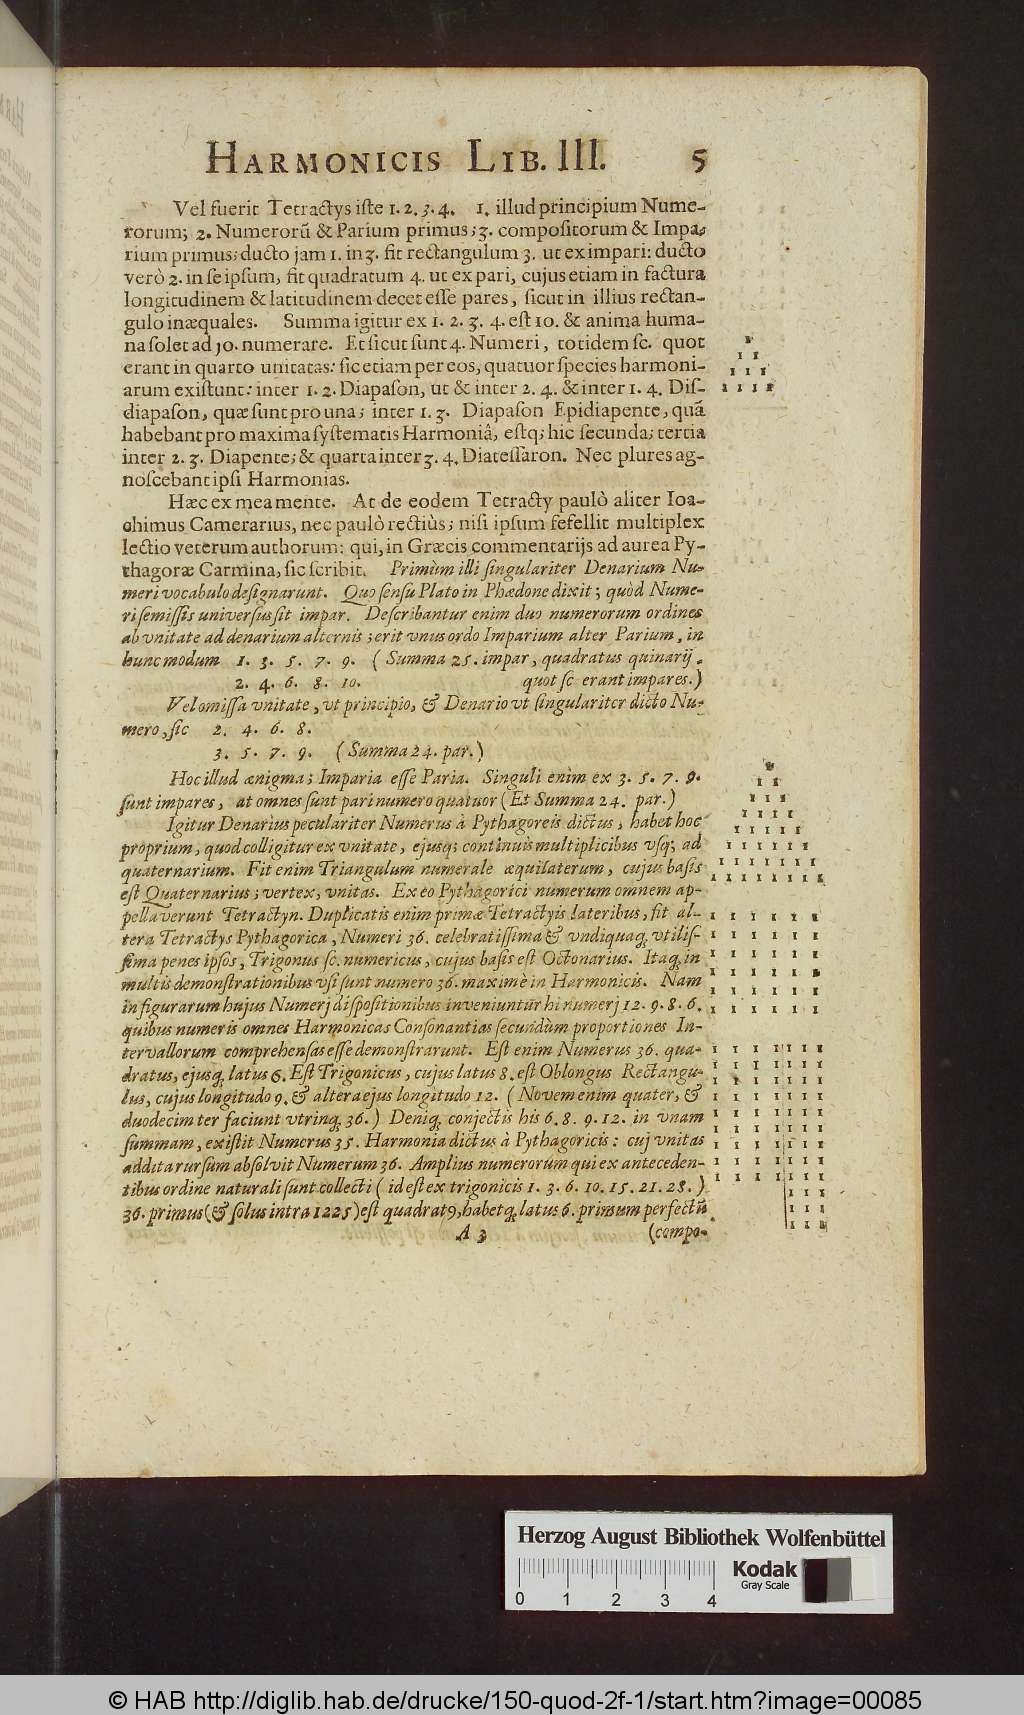 HARMONICIS LIB. III. 5
Vel fuerit Tetractys iſte 1. 2. 3. 4. 1. illud principium Nume-
rorum; 2. Numerorũ & Parium primus; 3. compoſitorum & Impa-
rium primus; ducto jam 1. in 3. fit rectangulum 3. ut ex impari: ducto
verò 2. in ſe ipſum, fit quadratum 4. ut ex pari, cujus etiam in factura
longitudinem & latitudinem decet eſſe pares, ſicut in illius rectan-
gulo inæquales. Summa igitur ex 1. 2. 3. 4. eſt 10. & anima huma-
na ſolet ad 10. numerare. Et ſicut ſunt 4. Numeri, totidem ſc. quot
erant in quarto unitates: ſic etiam per eos, quatuor ſpecies harmoni-
arum exiſtunt: inter 1. 2. Diapaſon, ut & inter 2. 4. & inter 1. 4. Diſ-
diapaſon, quæ ſunt pro una; inter 1. 3. Diapaſon Epidiapente, quã
habebant pro maxima ſyſtematis Harmoniâ, eſtq; hic ſecunda; tertia
inter 2. 3. Diapente; & quarta inter 3. 4. Diateſſaron. Nec plures ag-
noſcebant ipſi Harmonias.
Hæc ex mea mente. At de eodem Tetracty paulò aliter Ioa-
chimus Camerarius, nec paulò rectiùs; niſi ipſum fefellit multiplex
lectio veterum authorum: qui, in Græcis commentarijs ad aurea Py-
thagoræ Carmina, ſic ſcribit. Primùm illi ſingulariter Denarium Nu-
meri vocabulo deſignarunt. Quo ſenſu Plato in Phædone dixit; quòd Nume-
ri ſemiſſis univerſus ſit impar. Deſcribantur enim duo numerorum ordines
ab vnitate ad denarium alternis; erit vnus ordo Imparium alter Parium, in
hunc modum 1. 3. 5. 7. 9. (Summa 25. impar, quadratus quinarij.
2. 4. 6. 8. 10. quot ſc erant impares.)
Vel omiſſa vnitate, vt principio, & Denario vt ſingulariter dicto Nu-
mero, ſic 2. 4. 6. 8.
3. 5. 7. 9. (Summa 24. par.)
Hoc illud ænigma; Imparia eſſe Paria. Singuli enim ex 3. 5. 7. 9.
ſunt impares, at omnes ſunt pari numero quatuor (Et Summa 24. par.)
Igitur Denarius peculiariter Numerus à Pythagoreis dictus, habet hoc
proprium, quod colligitur ex vnitate, ejusq; continuis multiplicibus vſq; ad
quaternarium. Fit enim Triangulum numerale æquilaterum, cujus baſis
eſt Quaternarius; vertex, vnitas. Ex eo Pythagorici numerum omnem ap-
pellaverunt Tetractyn. Duplicatis enim primæ Tetractyis lateribus, fit al-
tera Tetractys Pythagorica, Numeri 36. celebratiſſima & vndiquaq; vtiliſ-
ſima penes ipſos, Trigonus ſc. numericus, cujus baſis eſt Octonarius. Itaq; in
multis demonſtrationibus vſi ſunt numero 36. maximè in Harmonicis. Nam
in figurarum hujus Numerj diſpoſitionibus inveniuntur hi numerj 12. 9. 8. 6.
quibus numeris omnes Harmonicas Conſonantias ſecundùm proportiones In-
tervallorum comprehenſas eſſe demonſtrarunt. Eſt enim Numerus 36. qua-
dratus, ejusq; latus 6. Eſt Trigonicus, cujus latus 8. eſt Oblongus Rectangu-
lus, cujus longitudo 9. & altera ejus longitudo 12. (Novem enim quater, &
duodecim ter faciunt vtrinq; 36.) Deniq; conjectis his 6. 8. 9. 12. in vnam
ſummam, exiſtit Numerus 35. Harmonia dictus à Pythagoricis: cuj vnitas
addita rurſum abſolvit Numerum 36. Amplius numerorum qui ex anteceden-
tibus ordine naturali ſunt collecti (id eſt ex trigonicis 1. 3. 6. 10. 15. 21. 28.)
36. primus (& ſolus intra 1225) eſt quadratꝰ, habetq; latus 6. primum perfectũ
A 3 (compo-
Herzog August Bibliothek Wolfenbüttel
Kodak
Gray Scale
0 1 2 3 4
© HAB http://diglib.hab.de/drucke/150-quod-2f-1/start.htm?image=00085